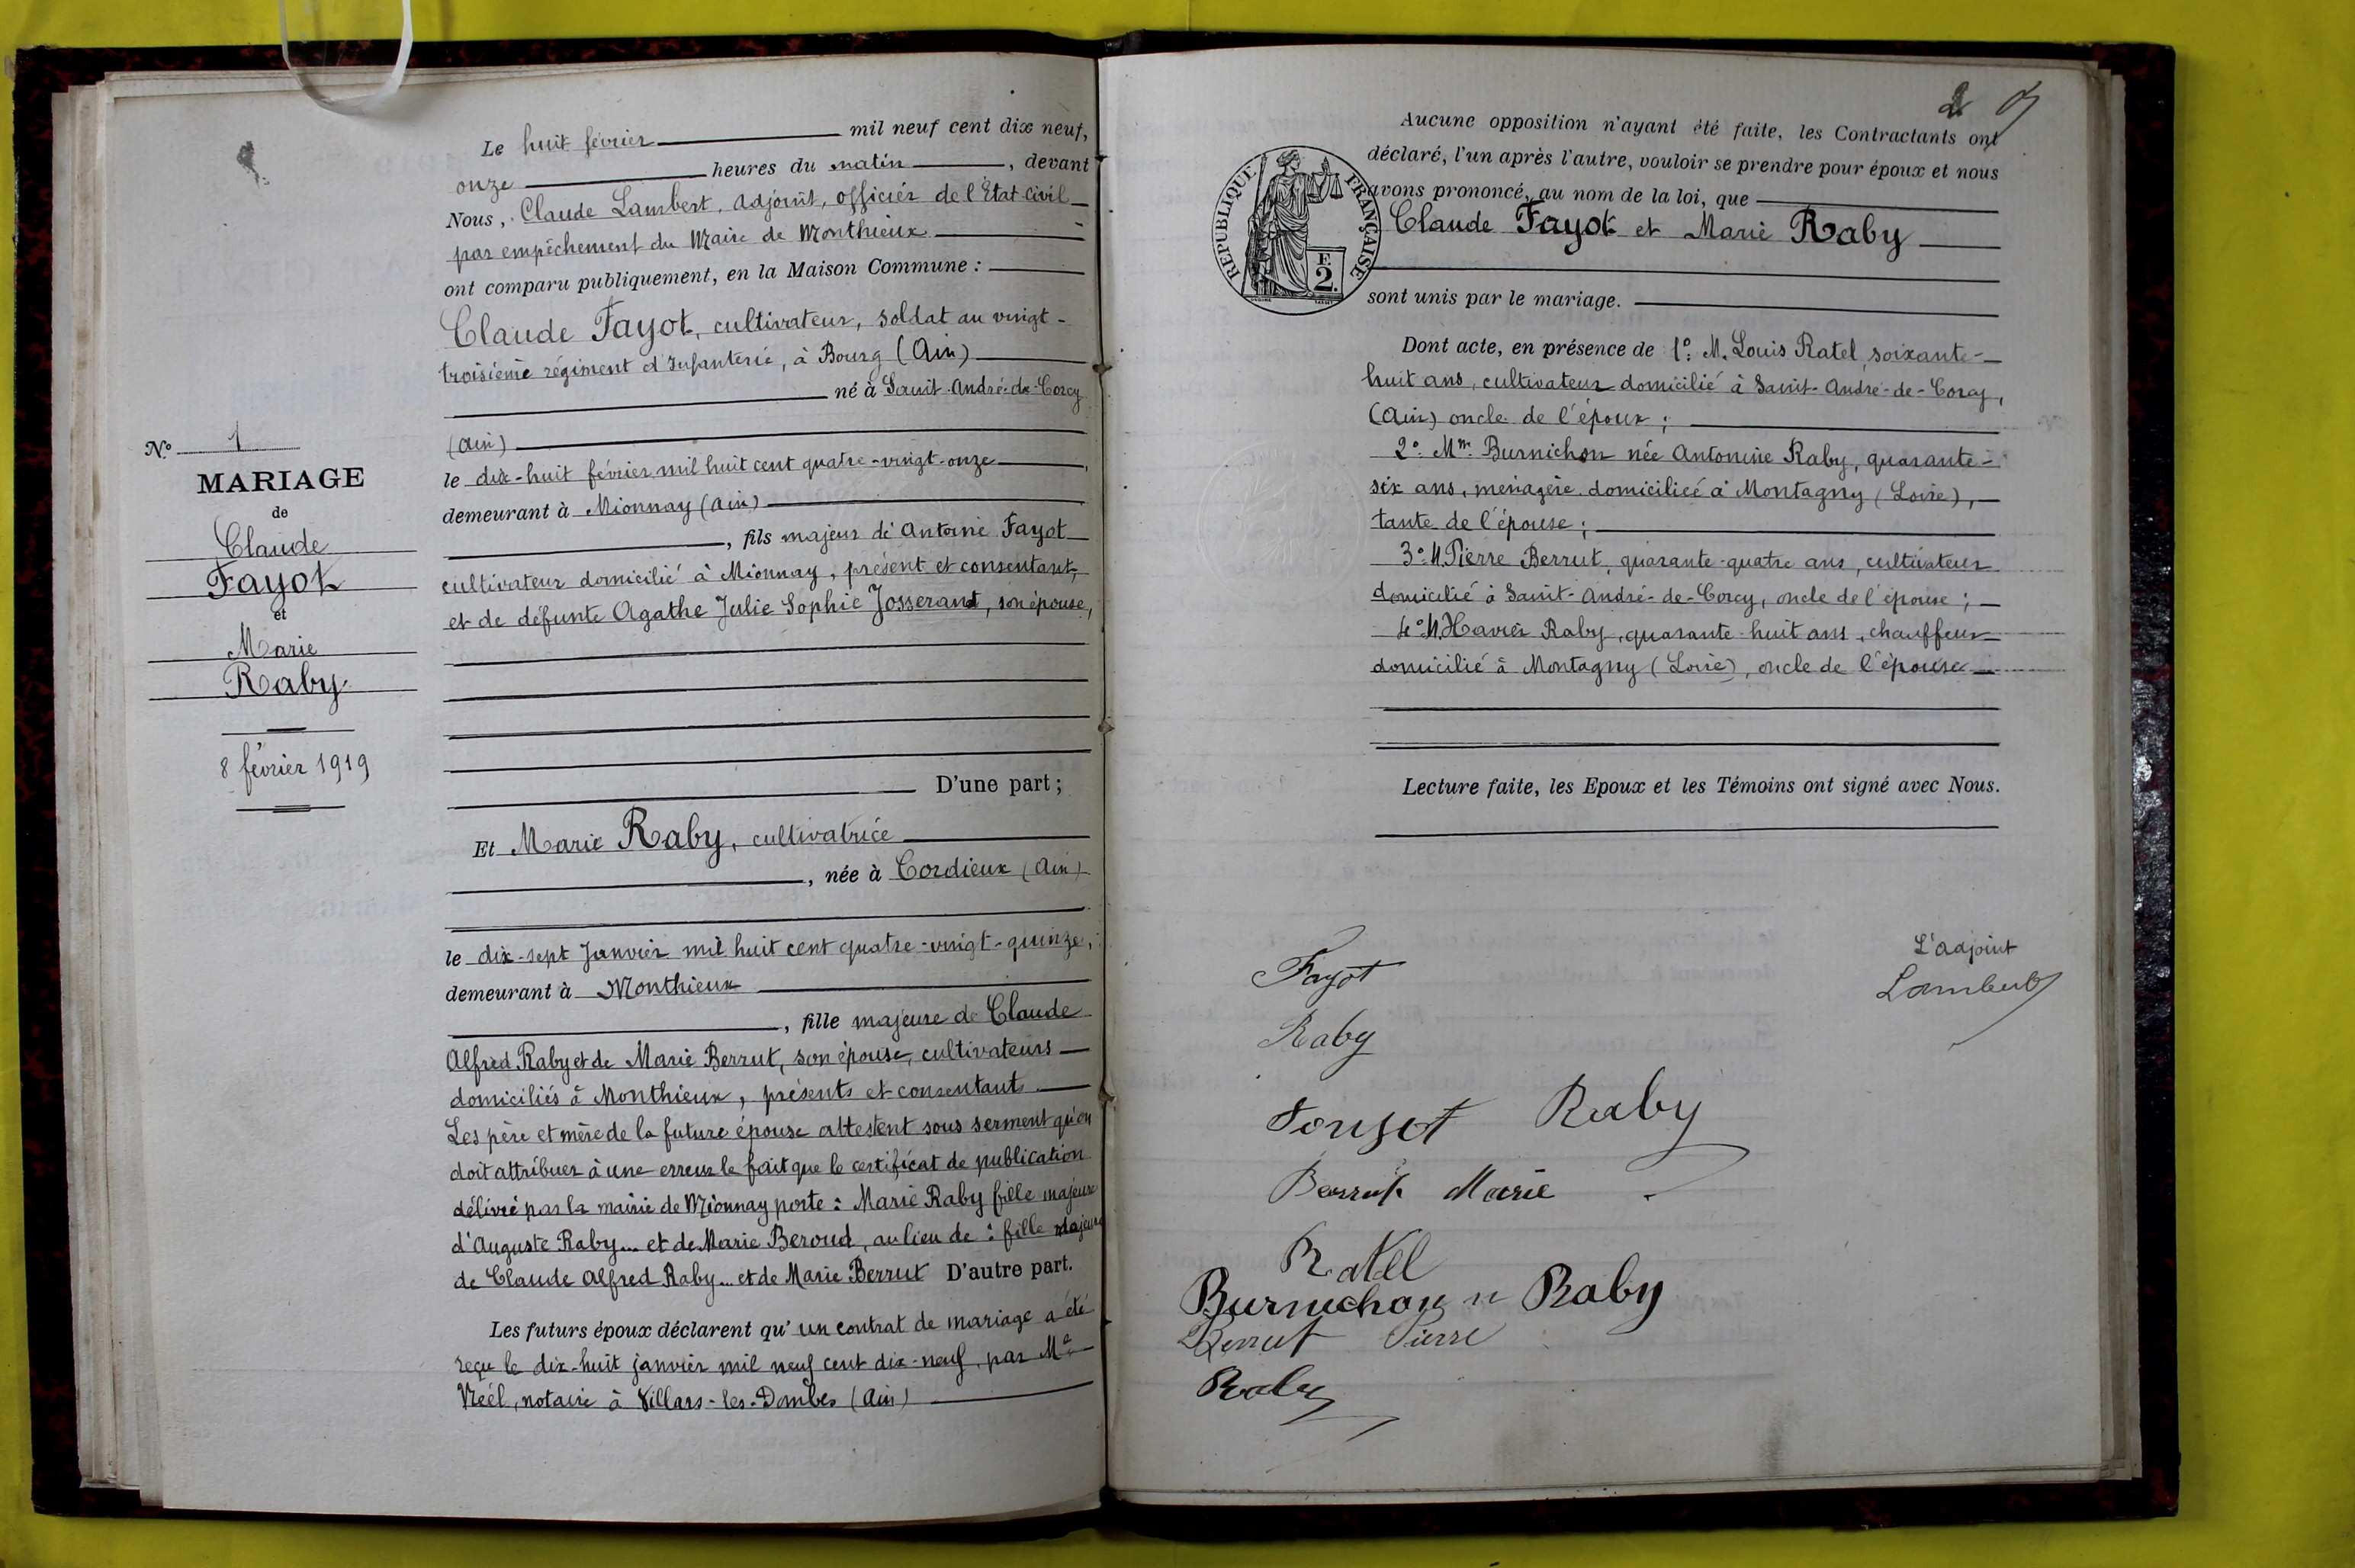 N° 1
MARIAGE
de
Claude
Fayot
et
Marie
Raby
8 février 1919
Le huit février mil neuf cent dix neuf,
onze heures du matin, devant
Nous, Claude Lambert, adjoint, officier de l'État-civil
par empêchement du Maire de Monthieux
ont comparu publiquement, en la Maison Commune :
Claude Fayot, cultivateur, soldat au vingt-
troisième régiment d'Infanterie, à Bourg (Ain)
né à Saint-André-de-Corcy
(Ain)
le dix-huit février mil huit cent quatre-vingt-onze,
demeurant à Mionnay (Ain)
, fils majeur de Antoine Fayot
cultivateur domicilié à Mionnay, présent et consentant,
et de défunte Agathe Julie Sophie Josserand, son épouse,
D'une part ;
Et Marie Raby, cultivatrice
, née à Cordieux (Ain)
le dix-sept Janvier mil huit cent quatre-vingt-quinze,
demeurant à Monthieux
, fille majeure de Claude
Alfred Raby et de Marie Berrut, son épouse, cultivateurs
domiciliés à Monthieux, présents et consentants
Les père et mère de la future épouse attestent sous serment qu'on
doit attribuer à une erreur le fait que le certificat de publication
délivré par la mairie de Mionnay porte : Marie Raby fille majeure
d'Auguste Raby... et de Marie Beroud, au lieu de : fille majeure
de Claude Alfred Raby... et de Marie Berrut D'autre part.
Les futurs époux déclarent qu'un contrat de mariage a été
reçu le dix-huit janvier mil neuf cent dix-neuf, par Me
Néel, notaire à Villars-les-Dombes (Ain)
2
RÉPUBLIQUE FRANÇAISE
E
2.
Aucune opposition n'ayant été faite, les Contractants ont
déclaré, l'un après l'autre, vouloir se prendre pour époux et nous
avons prononcé, au nom de la loi, que
Claude Fayot et Marie Raby
sont unis par le mariage.
Dont acte, en présence de 1°: M. Louis Ratel, soixante-
huit ans, cultivateur domicilié à Saint-André-de-Corcy,
(Ain) oncle de l'époux ;
2°: Mme Burnichon née Antonine Raby, quarante-
six ans, ménagère domiciliée à Montagny (Loire),
tante de l'épouse ;
3°: M. Pierre Berrut, quarante-quatre ans, cultivateur
domicilié à Saint-André-de-Corcy, oncle de l'épouse ;
4°: M. Xavier Raby, quarante-huit ans, chauffeur
domicilié à Montagny (Loire), oncle de l'épouse
Lecture faite, les Epoux et les Témoins ont signé avec Nous.
Fayot
L'adjoint
Lambert
Raby
Raby
Berrut Marie
Ratel
Burnichon n Raby
Berrut Pierre
Raby